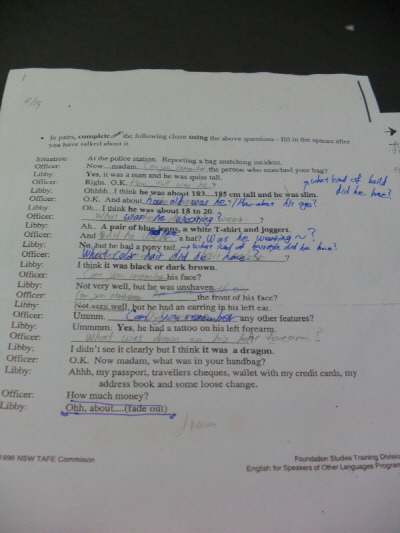 • In pairs, complete the following cloze using the above questions - fill in the spaces after
you have talked about it.
Situation: At the police station. Reporting a bag snatching incident.
Officer: Now....madam. the person who snatched your bag?
Libby: Yes, it was a man and he was quite tall.
Officer: Right. O.K. How tall was he?
what kind of build
did he have?
Libby: Ohhhh. I think he was about 183....185 cm tall and he was slim.
Officer: O.K. And about how old was he? / his age?
Libby: Oh... I think he was about 18 to 20.
Officer: What was he wearing?
Libby: Ah.. A pair of blue jeans, a white T-shirt and joggers.
Officer: And a hat? Was he wearing ~?
Libby: No, but he had a pony tail. what kind of did he have?
Officer: What color hair did he have ?
Libby: I think it was black or dark brown.
Officer: his face?
Libby: Not very well, but he was unshaven.
Officer: the front of his face?
Libby: Not very well, but he had an earring in his left ear.
Officer: Ummm. Can you remember any other features?
Libby: Ummmm. Yes, he had a tattoo on his left forearm.
Officer: What was drawn on his forearm?
Libby: I didn't see it clearly but I think it was a dragon.
Officer: O.K. Now madam, what was in your handbag?
Libby: Ahhh, my passport, travellers cheques, wallet with my credit cards, my
address book and some loose change.
Officer: How much money?
Libby: Ohh, about....(fade out)
1996 NSW TAFE Commision
Foundation Studies Training Divisio
English for Speakers of Other Languages Program